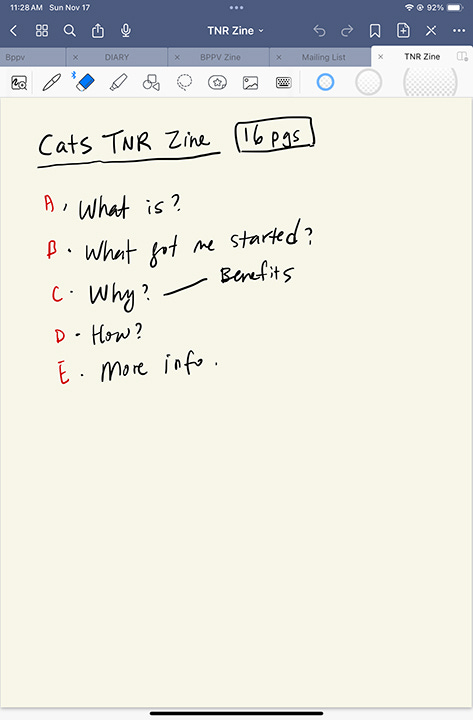 11:28 AM Sun Nov 17 92%
TNR Zine
Bppv DIARY BPPV Zine Mailing List TNR Zine
Cats TNR Zine 16 pgs
A. What is?
B. What got me started?
C. Why? — Benefits
D. How?
E. More info.